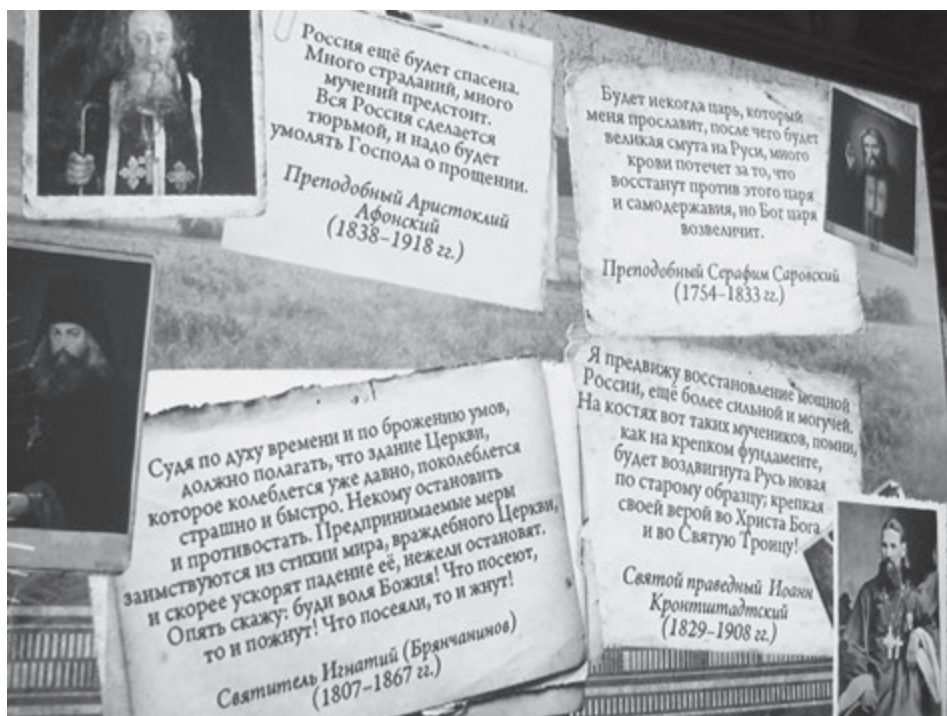 Россия ещё будет спасена.
Много страданий, много
мучений предстоит.
Вся Россия сделается
тюрьмой, и надо будет
умолять Господа о прощении.
Преподобный Аристоклий
Афонский
(1838–1918 гг.)
Будет некогда царь, который
меня прославит, после чего будет
великая смута на Руси, много
крови потечет за то, что
восстанут против этого царя
и самодержавия, но Бог царя
возвеличит.
Преподобный Серафим Саровский
(1754–1833 гг.)
Судя по духу времени и по брожению умов,
должно полагать, что здание Церкви,
которое колеблется уже давно, поколеблется
страшно и быстро. Некому остановить
и противостать. Предпринимаемые меры
заимствуются из стихии мира, враждебного Церкви,
и скорее ускорят падение её, нежели остановят.
Опять скажу: буди воля Божия! Что посеют,
то и пожнут! Что посеяли, то и жнут!
Святитель Игнатий (Брянчанинов)
(1807–1867 гг.)
Я предвижу восстановление мощной
России, ещё более сильной и могучей.
На костях вот таких мучеников, помни,
как на крепком фундаменте,
будет воздвигнута Русь новая
по старому образцу; крепкая
своей верой во Христа Бога
и во Святую Троицу!
Святой праведный Иоанн
Кронштадтский
(1829–1908 гг.)